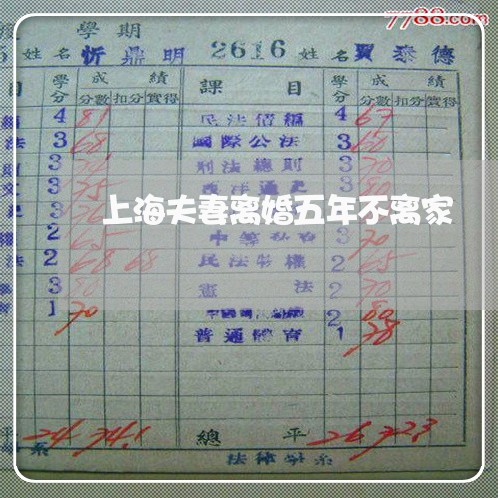 7788.com
學期
姓名 忻鼎明 2616 姓名 賈泰德
目 學分 成績 課目 學分 成績
分數 扣分 實得 分數 扣分 實得
4 81 民法債編 4 67
法 3 68 國際公法 3 60
3 刑法總則 3 70
3 75 西洋通史 3 80
上海夫妻离婚五年不离家
2 65 3 70
法 2 68 68 民法物權 2 65
3 80 憲法 2 70
1 70 2 80
普通體育 1 78
平 24 74.1 總平 26 72.3
系 法律學系